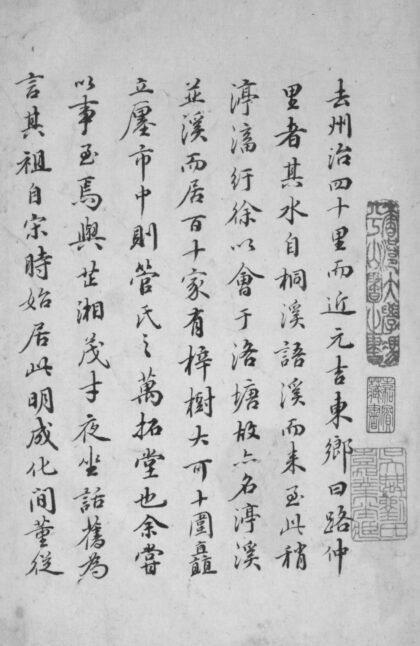 去州治四十里而近元吉東鄉曰路仲
里者其水自桐溪語溪而来至此稍
渟滀紆徐以會于洛塘故亦名渟溪
並溪而居百十家有梓樹大可十圍矗
立廛市中則管氏之萬拓堂也余嘗
以事至焉與芷湘茂才夜坐話舊為
言其祖自宋時始居此明成化間董從